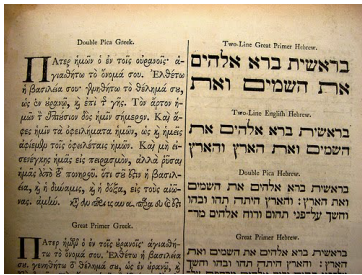 Double Pica Greek.
ΠΑτερ ἡμῶν ὁ ἐν τοῖς οὐρανοῖς· ἁ-
γιασθήτω τὸ ὄνομά σου. Ἐλθέτω
ἡ βασιλεία σου· γενηθήτω τὸ θέλημά σου,
ὡς ἐν οὐρανῷ, καὶ ἐπὶ τῆς γῆς. Τὸν ἄρτον ἡ-
μῶν τὸν ἐπιούσιον δὸς ἡμῖν σήμερον. Καὶ ἄ-
φες ἡμῖν τὰ ὀφειλήματα ἡμῶν, ὡς καὶ ἡμεῖς
ἀφίεμεν τοῖς ὀφειλέταις ἡμῶν. Καὶ μὴ εἰ-
σενέγκῃς ἡμᾶς εἰς πειρασμὸν, ἀλλὰ ῥῦσαι
ἡμᾶς ἀπὸ τοῦ πονηροῦ. ὅτι σοῦ ἐστιν ἡ βασιλεί-
α, καὶ ἡ δύναμις, καὶ ἡ δόξα, εἰς τοὺς αἰῶ-
νας. ἀμήν.
Great Primer Greek.
ΠΑτερ ἡμῶν ὁ ἐν τοῖς οὐρανοῖς· ἁγιασθή-
τω τὸ ὄνομά σου. Ἐλθέτω ἡ βασιλεία
σου. γενηθήτω τὸ θέλημά σου, ὡς ἐν οὐρανῷ, καὶ
Two-Line Great Primer Hebrew.
בראשית ברא אלהים
את השמים ואת
Two-Line English Hebrew.
בראשית ברא אלהים את
השמים ואת הארץ והארץ
Double Pica Hebrew.
בראשית ברא אלהים את השמים
ואת הארץ: והארץ היתה תהו ובהו
וחשך על־פני תהום ורוח אלהים מר־
Great Primer Hebrew.
בראשית ברא אלהים את השמים ואת
הארץ: והארץ היתה תהו ובהו וחשך